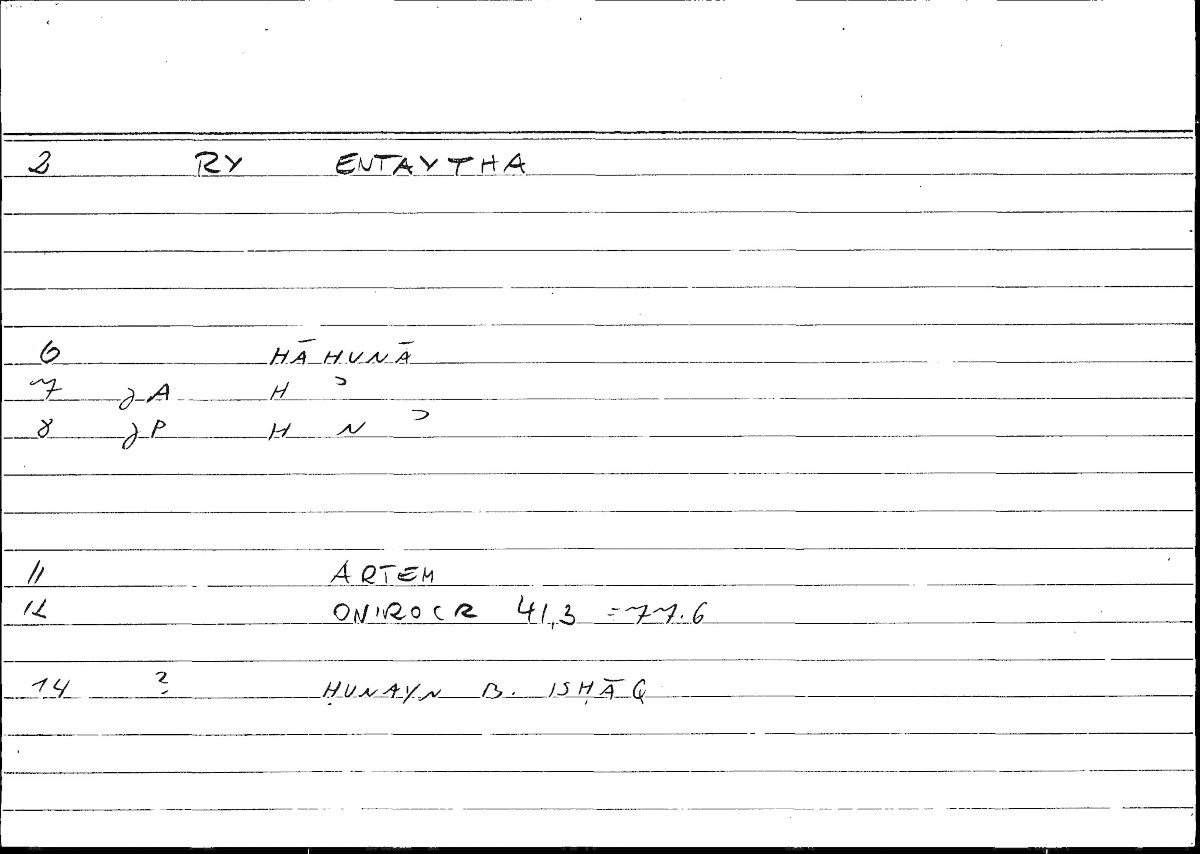 2 RY ENTAYTHA
6 HĀHUNĀ
7 gA H ͻ
8 gP H N ͻ
11 ARTEM
12 ONIROCR 41,3 =77.6
14 ? ḤUNAYN B. ISḤĀQ